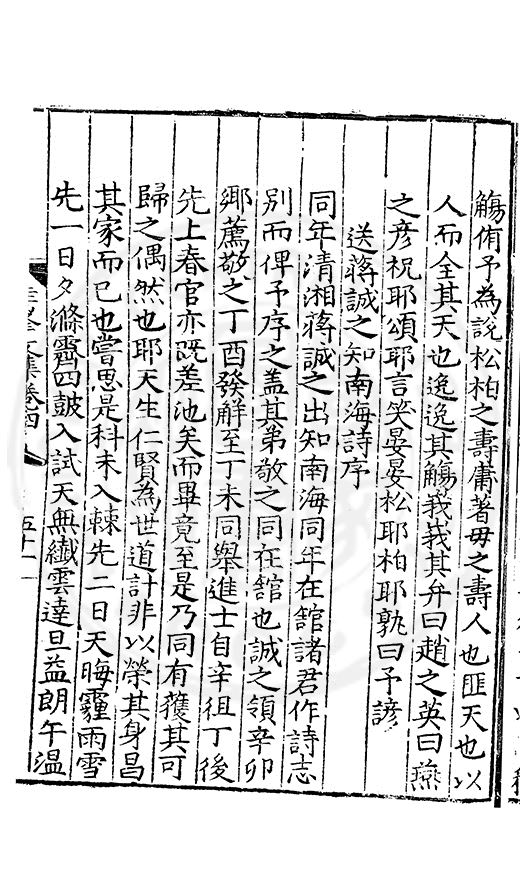 觴侑予為說松柏之壽庸著毋之壽人也匪天也以
人而全其天也逸逸其觴莪莪其弁曰趙之英曰燕
之彦祝耶頌耶言笑晏晏松耶柏耶孰曰予諺
送蔣誠之知南海詩序
同年清湘蔣誠之出知南海同年在舘諸君作詩志
別而俾予序之盖其弟敬之同在舘也誠之領辛卯
鄉薦敬之丁酉發解至丁未同舉進士自辛徂丁後
先上春官亦既差池矣而畢竟至是乃同有獲其可
歸之偶然也耶天生仁賢為世道計非以榮其身昌
其家而已也嘗思是科未入棘先二日天晦霾雨雪
先一日夕滌霽四鼓入試天無纎雲達旦益朗午温